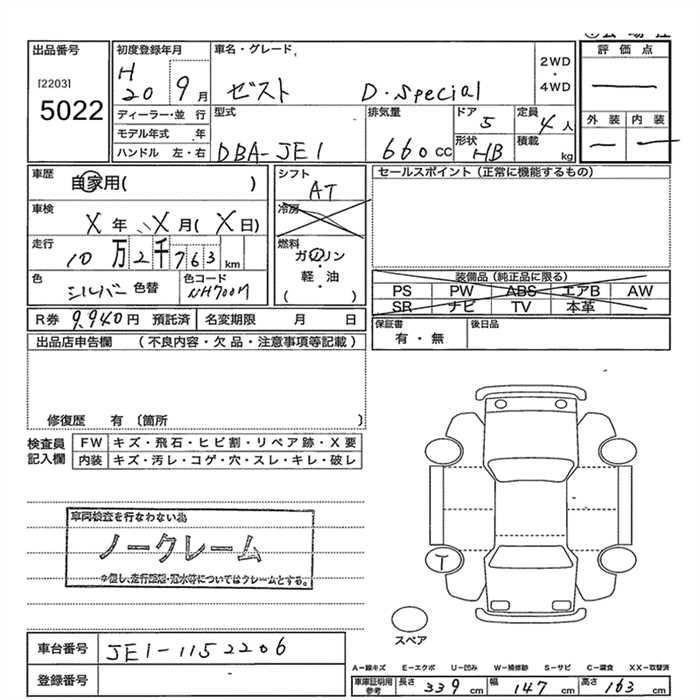 出品番号
[2203]
5022
初度登録年月
H
20 9月
車名・グレード
ゼスト D・Special
2WD
・
4WD
評価点
—
外装 内装
— —
ディーラー・並行
モデル年式 年
ハンドル 左・右
型式
DBA-JE1
排気量
660cc
ドア
5
定員
4人
形状
HB
積載
kg
車歴
自家用( )
シフト
AT
セールスポイント(正常に機能するもの)
車検
X年 X月(X日)
冷房
走行
10万2千763km
燃料
ガソリン
・
軽・油
( )
色
シルバー 色替
色コード
NH700M
装備品(純正品に限る)
PS PW ABS エアB AW
SR ナビ TV 本革
R券 9,940円 預託済 名変期限 月 日
保証書
有・無
後日品
出品店申告欄 (不良内容・欠品・注意事項等記載)
修復歴 有〔箇所 〕
検査員
記入欄
FW キズ・飛石・ヒビ割・リペア跡・X要
内装 キズ・汚レ・コゲ・穴・スレ・キレ・破レ
車両検査を行なわない為
ノークレーム
※但し、走行距離・冠水等についてはクレームとする。
T
スペア
車台番号 JE1-1152206
登録番号 -
A-線キズ E-エクボ U-凹み W-補修跡 S-サビ C-腐食 XX-取替済
車庫証明用
参考
長さ 339cm 幅 147cm 高さ 163cm